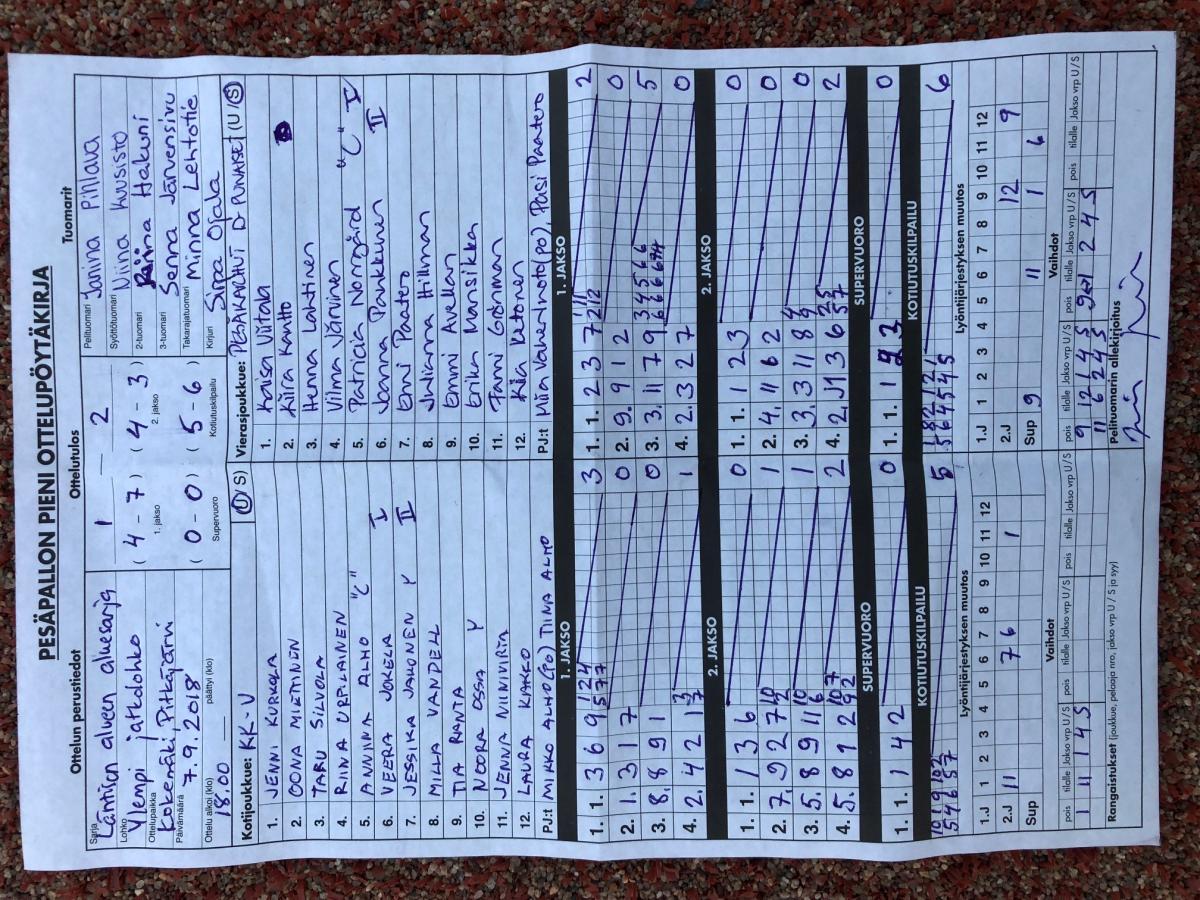 PESÄPALLON PIENI OTTELUPÖYTÄKIRJA
Ottelun perustiedot
Sarja
Läntisen alueen aluesarja
Lohko
Ylempi jatkolohko
Ottelupaikka
Kokemäki, Pitkäjärvi
Päivämäärä 7.9.2018
Ottelu alkoi (klo) päättyi (klo)
18.00
Ottelutulos
1 2
( 4 - 7 ) ( 4 - 3 )
1. jakso 2. jakso
( 0 - 0 ) ( 5 - 6 )
Supervuoro Kotiutuskilpailu
Tuomarit
Pelituomari Janina Pihlava
Syöttötuomari Niina Kuusisto
2-tuomari Hakuni
3-tuomari Senna Järvensivu
Takarajatuomari Minna Lehtotie
Kirjuri Sirpa Ojala
Kotijoukkue: KK-V (U / S)
1. JENNI KURKELA
2. OONA MIETTINEN
3. TARU SILVOLA
4. RIINA URPILAINEN
5. ANNIINA ALHO "C"
6. VEERA JOKELA I
7. JESSIKA JAKONEN Y II
8. MILLA VANDELL
9. TIA RANTA
10. NOORA OSSA Y
11. JENNA NIINIVIRTA
12. LAURA KAKKO
PJ:t MIKKO ALHO (PO) TIINA ALHO
Vierasjoukkue: PESÄKARHUT D PUNAISET (U / S)
1. Kaisa Viitala
2. Kiira Kantto
3. Henna Lahtinen
4. Vilma Järvinen
5. Patricia Norrgård "C" V
6. Joanna Pankkunen II
7. Enni Paatero
8. Julianna Hillman
9. Emmi Avellan
10. Erika Kansikka
11. Fanni Grönman
12. Kiia Ketonen
PJ:t Miia Vanerhnoto (po), Pasi Paatero
1. JAKSO
1. 1. 3 6 9 3
2. 1. 3 1 7 0
3. 8. 8 9 1 0
4. 2. 4 2 1 1
2. JAKSO
1. 1. 1 3 6 0
2. 7. 9 2 7 1
3. 5. 8 9 11 1
4. 5. 8 1 2 2
SUPERVUORO
1. 1. 1 4 2 0
KOTIUTUSKILPAILU
5
Lyöntijärjestyksen muutos
1 2 3 4 5 6 7 8 9 10 11 12
1.J
2.J 11 7 6 1
Sup
Vaihdot
pois tilalle Jakso vrp U / S pois tilalle Jakso vrp U / S pois tilalle Jakso vrp U / S
1 11 1 4 S
Rangaistukset (joukkue, pelaaja nro, jakso vrp U / S ja syy)
1. JAKSO
1. 1. 2 3 7 2
2. 9. 9 1 2 0
3. 3. 11 7 9 5
4. 2. 3 2 7 0
2. JAKSO
1. 1. 1 2 3 0
2. 4. 11 6 2 0
3. 3. 3 11 8 0
4. 2. 11 3 6 2
SUPERVUORO
1. 1. 1 3 0
KOTIUTUSKILPAILU
6
Lyöntijärjestyksen muutos
1 2 3 4 5 6 7 8 9 10 11 12
1.J
2.J 12 9
Sup 9 11 1 6
Vaihdot
pois tilalle Jakso vrp U / S pois tilalle Jakso vrp U / S pois tilalle Jakso vrp U / S
9 12 1 4 S
11 6 2 4 S
Pelituomarin allekirjoitus